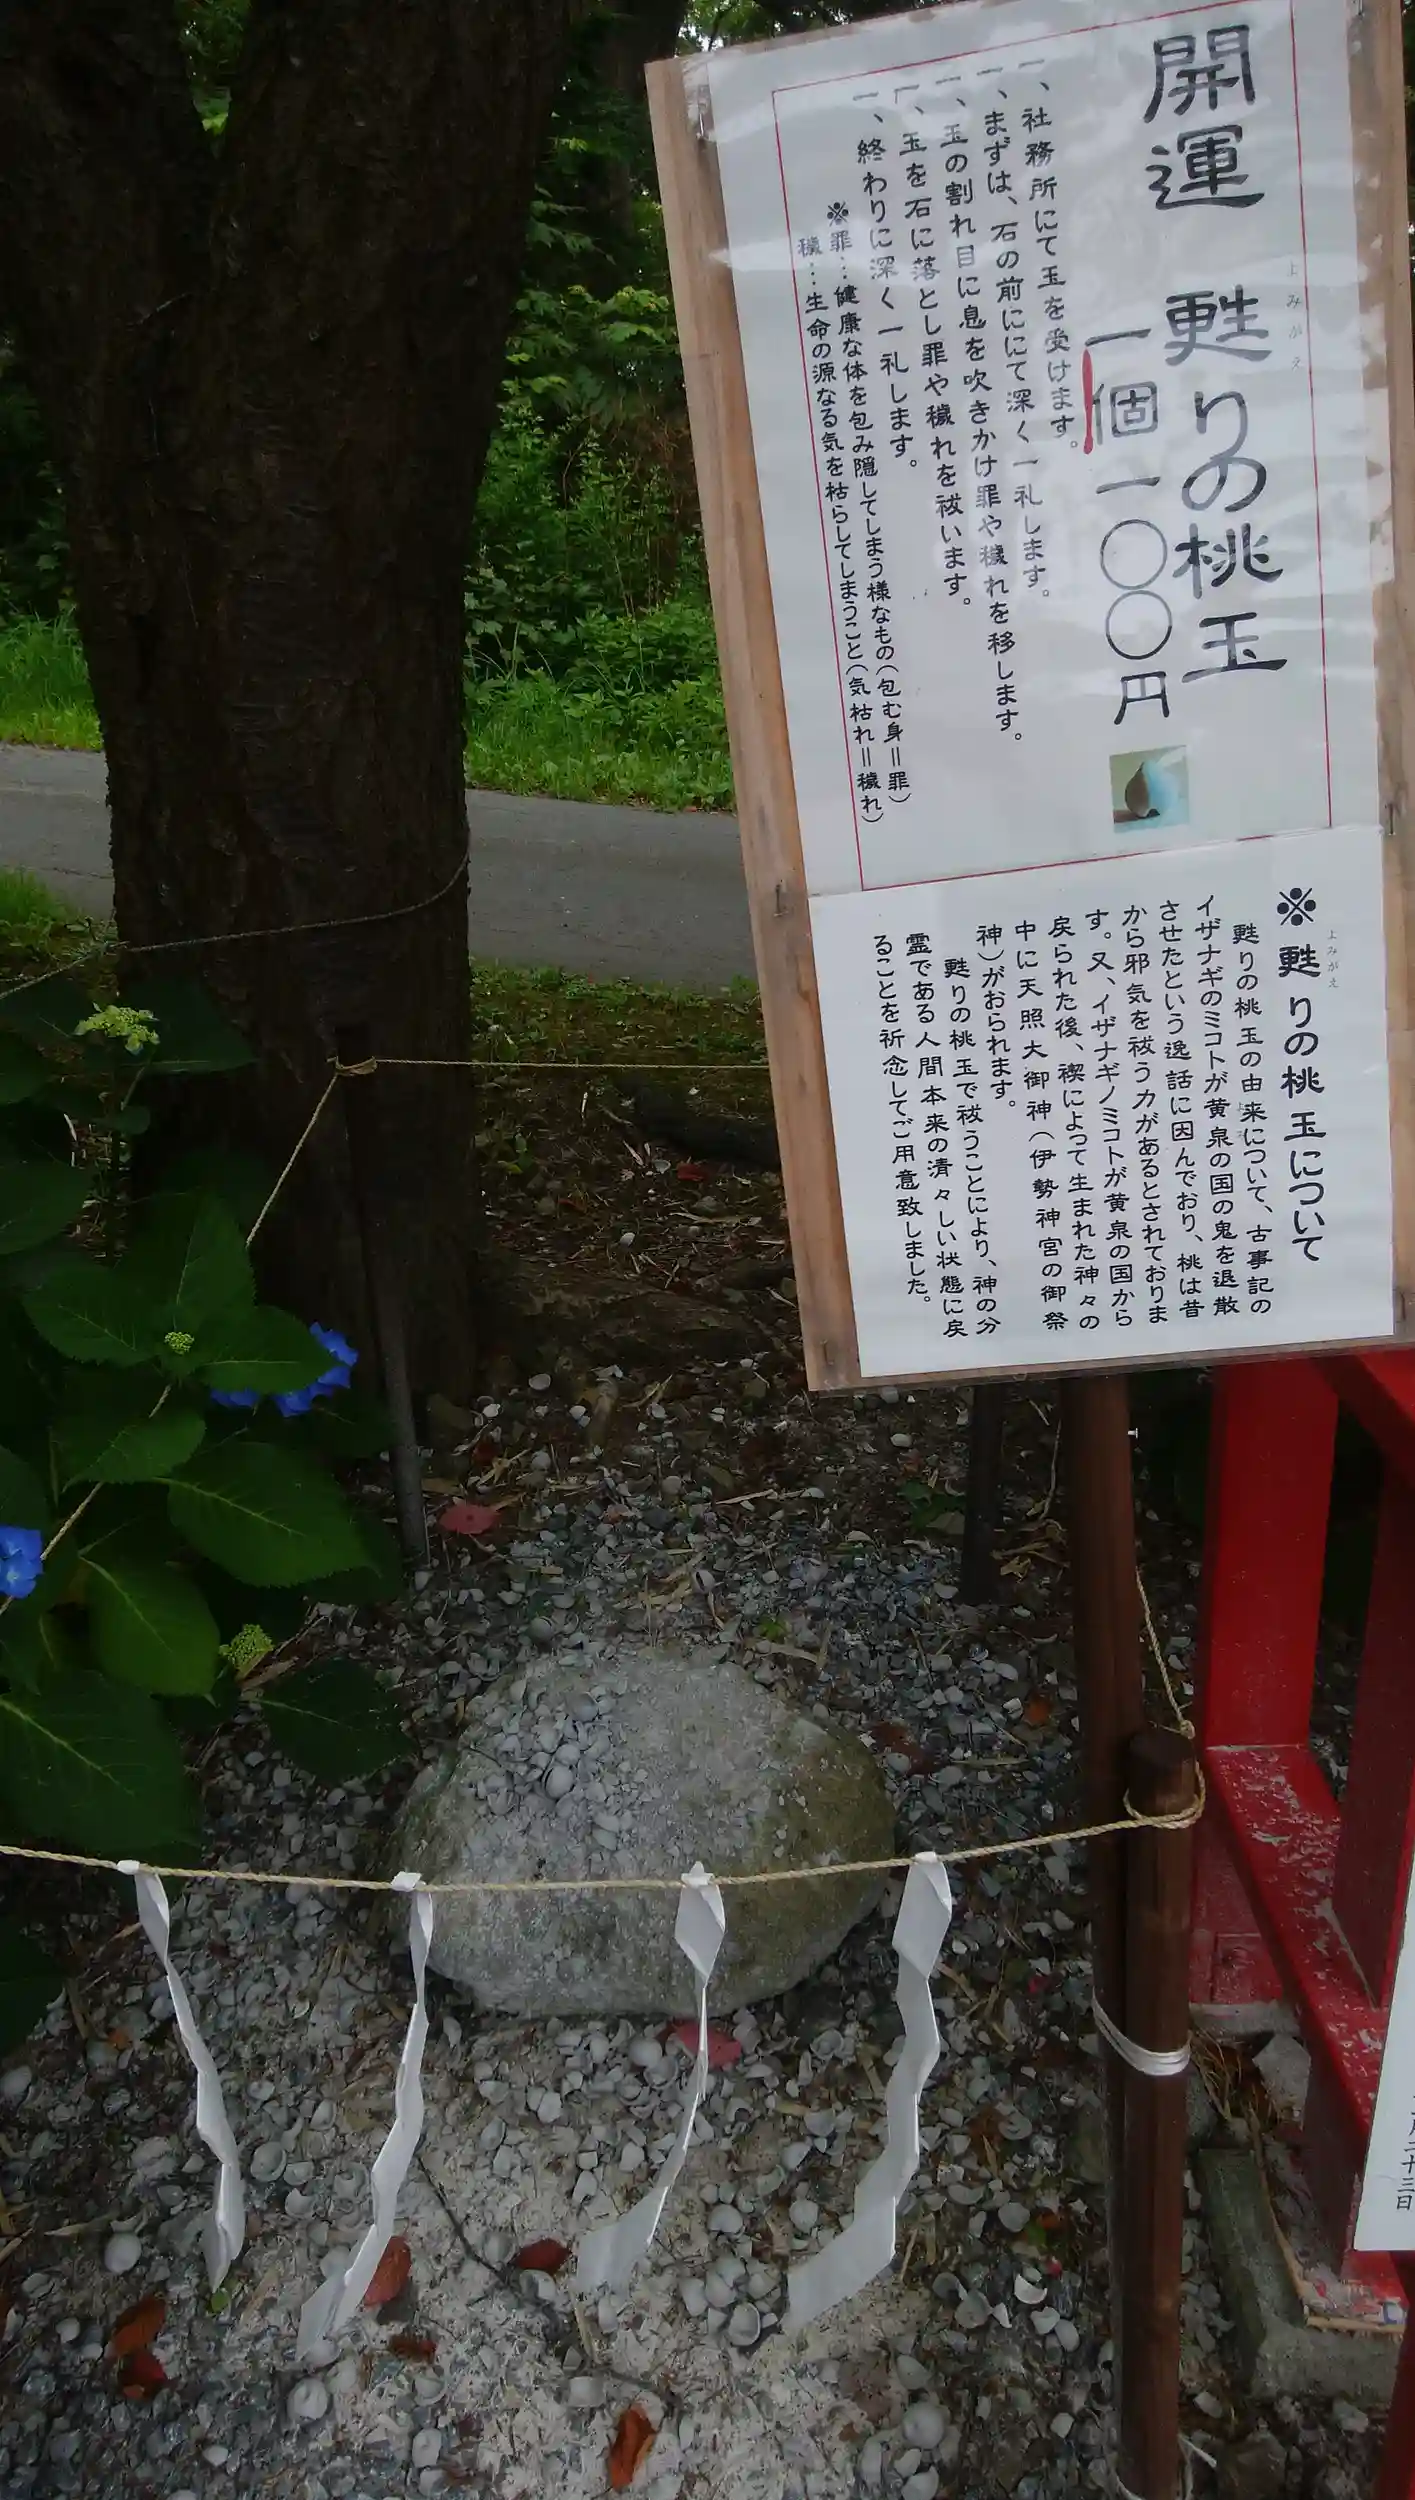 開運 甦りの桃玉
よみがえ
一個一〇〇円
一、社務所にて玉を受けます。
一、まずは、石の前ににて深く一礼します。
一、玉の割れ目に息を吹きかけ罪や穢れを移します。
一、玉を石に落とし罪や穢れを祓います。
一、終わりに深く一礼します。
※罪…健康な体を包み隠してしまう様なもの(包む身=罪)
穢…生命の源なる気を枯らしてしまうこと(気枯れ=穢れ)
※甦りの桃玉について
よみがえ
甦りの桃玉の由来について、古事記の
イザナギのミコトが黄泉の国の鬼を退散
させたという逸話に因んでおり、桃は昔
から邪気を祓う力があるとされておりま
す。又、イザナギノミコトが黄泉の国から
戻られた後、禊によって生まれた神々の
中に天照大御神(伊勢神宮の御祭
神)がおられます。
甦りの桃玉で祓うことにより、神の分
霊である人間本来の清々しい状態に戻
ることを祈念してご用意致しました。
月二十三日